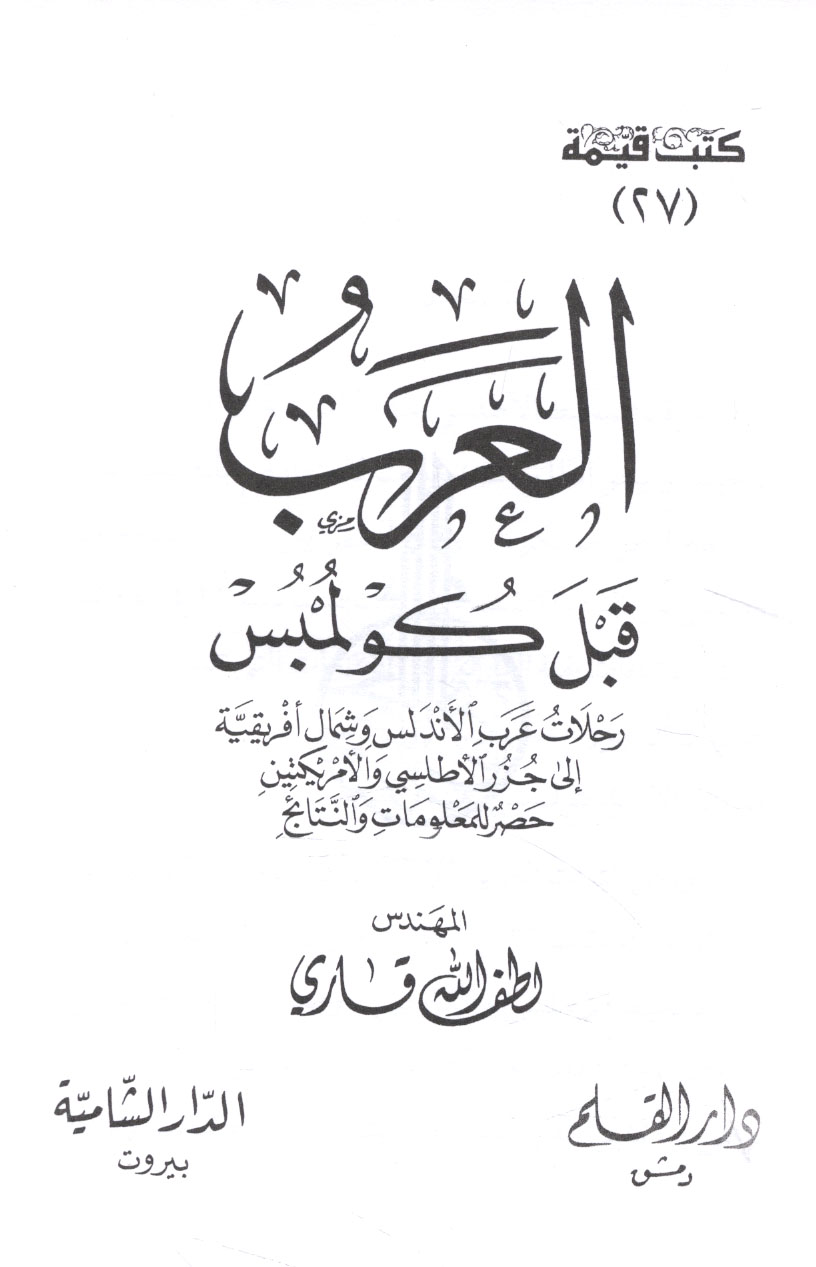 كتب قيّمة
(٢٧)
العرب
رمزي
قَبْلَ كُولُمْبُسْ
رَحْلَاتُ عَرَبِ الأَنْدَلُسِ وَشِمَالِ أفْرِيقِيَّة
إلىٰ جُزُرِ الأطلسِي وَالأَمْرِيكتِينِ
حَصْرٌ للمَعْلومَاتِ وَالنَّتَائجِ
المهَندس
لطف الله قاري
دار القلم
دمشق
الدّار الشّاميّة
بيروت